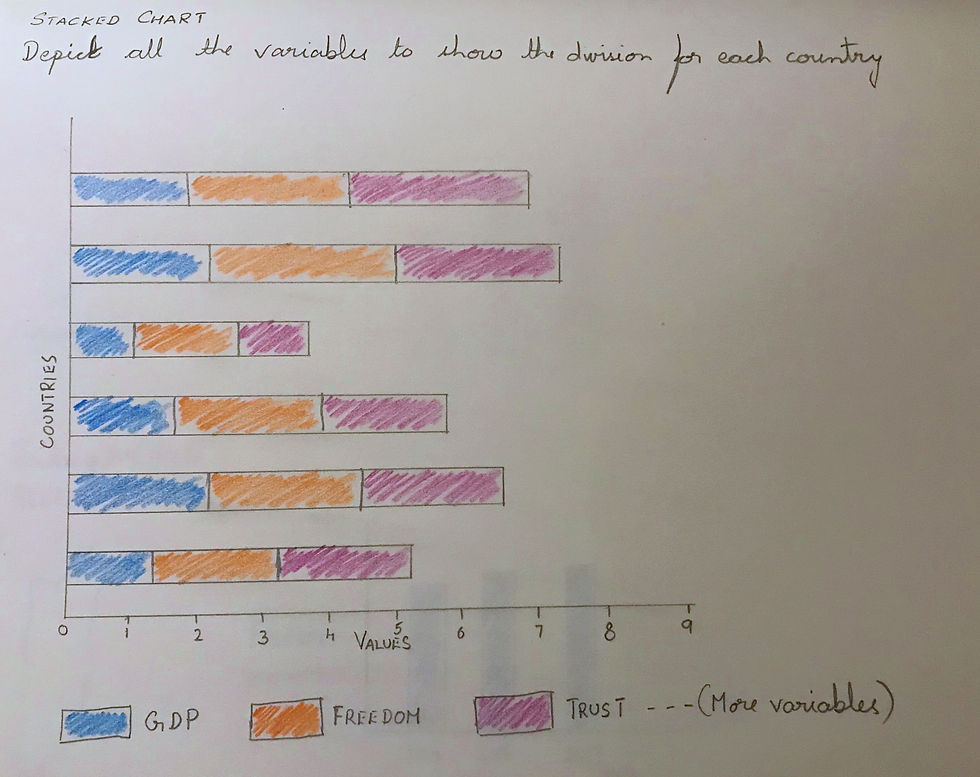 STACKED CHART
Depict all the variables to show the division for each country
COUNTRIES
0 1 2 3 4 5 6 7 8 9
VALUES
GDP FREEDOM TRUST --- (More variables)